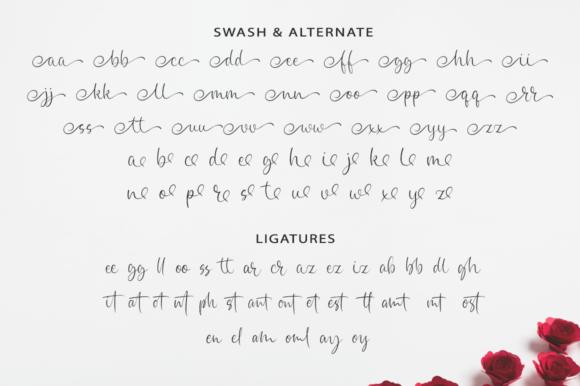 SWASH & ALTERNATE
aa bb cc dd ee ff gg hh ii
jj kk ll mm nn oo pp qq rr
ss tt uu vv ww xx yy zz
a b c d e g h i j k l m
n o p r s t u v w x y z
LIGATURES
ee gg ll oo ss tt ar cr az ez iz ab bb dl gh
it at ot nt ph st ant ont et est tl amt int ost
en el am oml ay oy